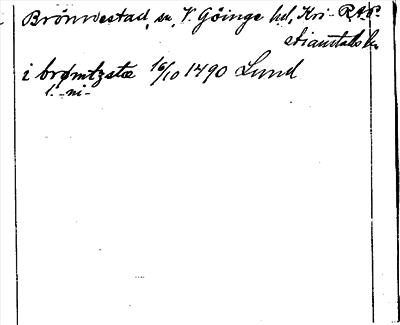 Brönnestad, sn, V. Göinge hd, Kri- RAP.
stianstads l.
i brømtzstæ 16/10 1490 Lund
1. -ni-